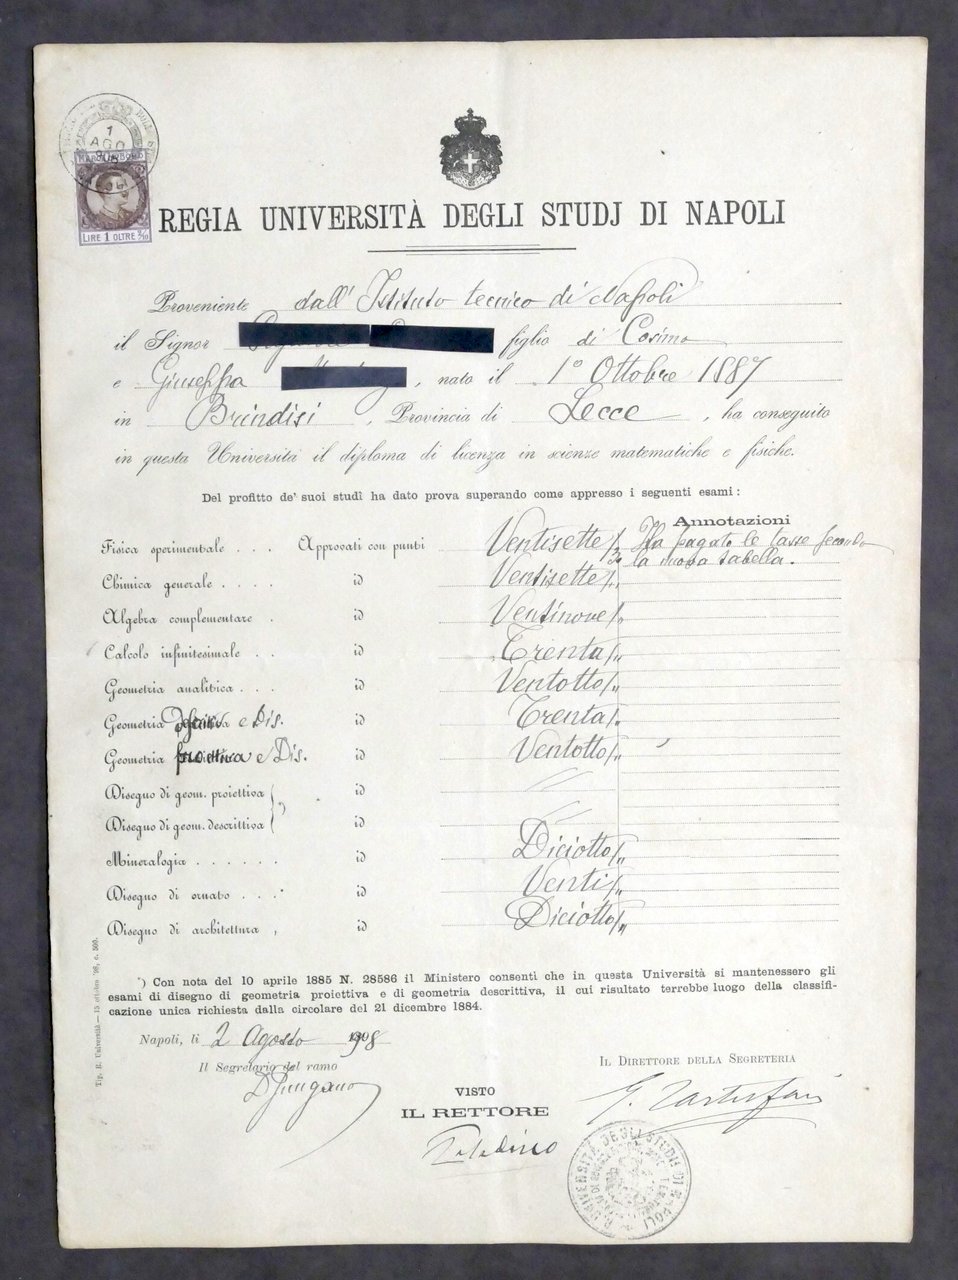 1
AGO
908
MARCA DA BOLLO
LIRE 1 OLTRE 2/10
REGIA UNIVERSITÀ DEGLI STUDJ DI NAPOLI
Proveniente dall' Istituto tecnico di Napoli
il Signor figlio di Cosimo
e Giuseppa , nato il 1° Ottobre 1887
in Brindisi , Provincia di Lecce , ha conseguito
in questa Università il diploma di licenza in scienze matematiche e fisiche.
Del profitto de' suoi studî ha dato prova superando come appresso i seguenti esami:
Annotazioni
Fisica sperimentale . . . Approvati con punti Ventisette/30 Ha pagato le tasse secondo
la nuova tabella.
Chimica generale . . . . id Ventisette/„
Algebra complementare . id Ventinove/„
Calcolo infinitesimale . . id Trenta/„
Geometria analitica . . . id Ventotto/„
Geometria e Dis. id Trenta/„
Geometria e Dis. id Ventotto/„
Disegno di geom. proiettiva id
Disegno di geom. descrittiva *) id
Mineralogia . . . . . . id Diciotto/„
Disegno di ornato . . . . id Venti/„
Disegno di architettura , id Diciotto/„
*) Con nota del 10 aprile 1885 N. 28586 il Ministero consentì che in questa Università si mantenessero gli
esami di disegno di geometria proiettiva e di geometria descrittiva, il cui risultato terrebbe luogo della classifi-
cazione unica richiesta dalla circolare del 21 dicembre 1884.
Napoli, li 2 Agosto 1908
Il Segretario del ramo
IL DIRETTORE DELLA SEGRETERIA
VISTO
IL RETTORE
R. UNIVERSITÀ DEGLI STUDII DI NAPOLI
Tip. R. Università — 15 ottobre 98, c. 500.